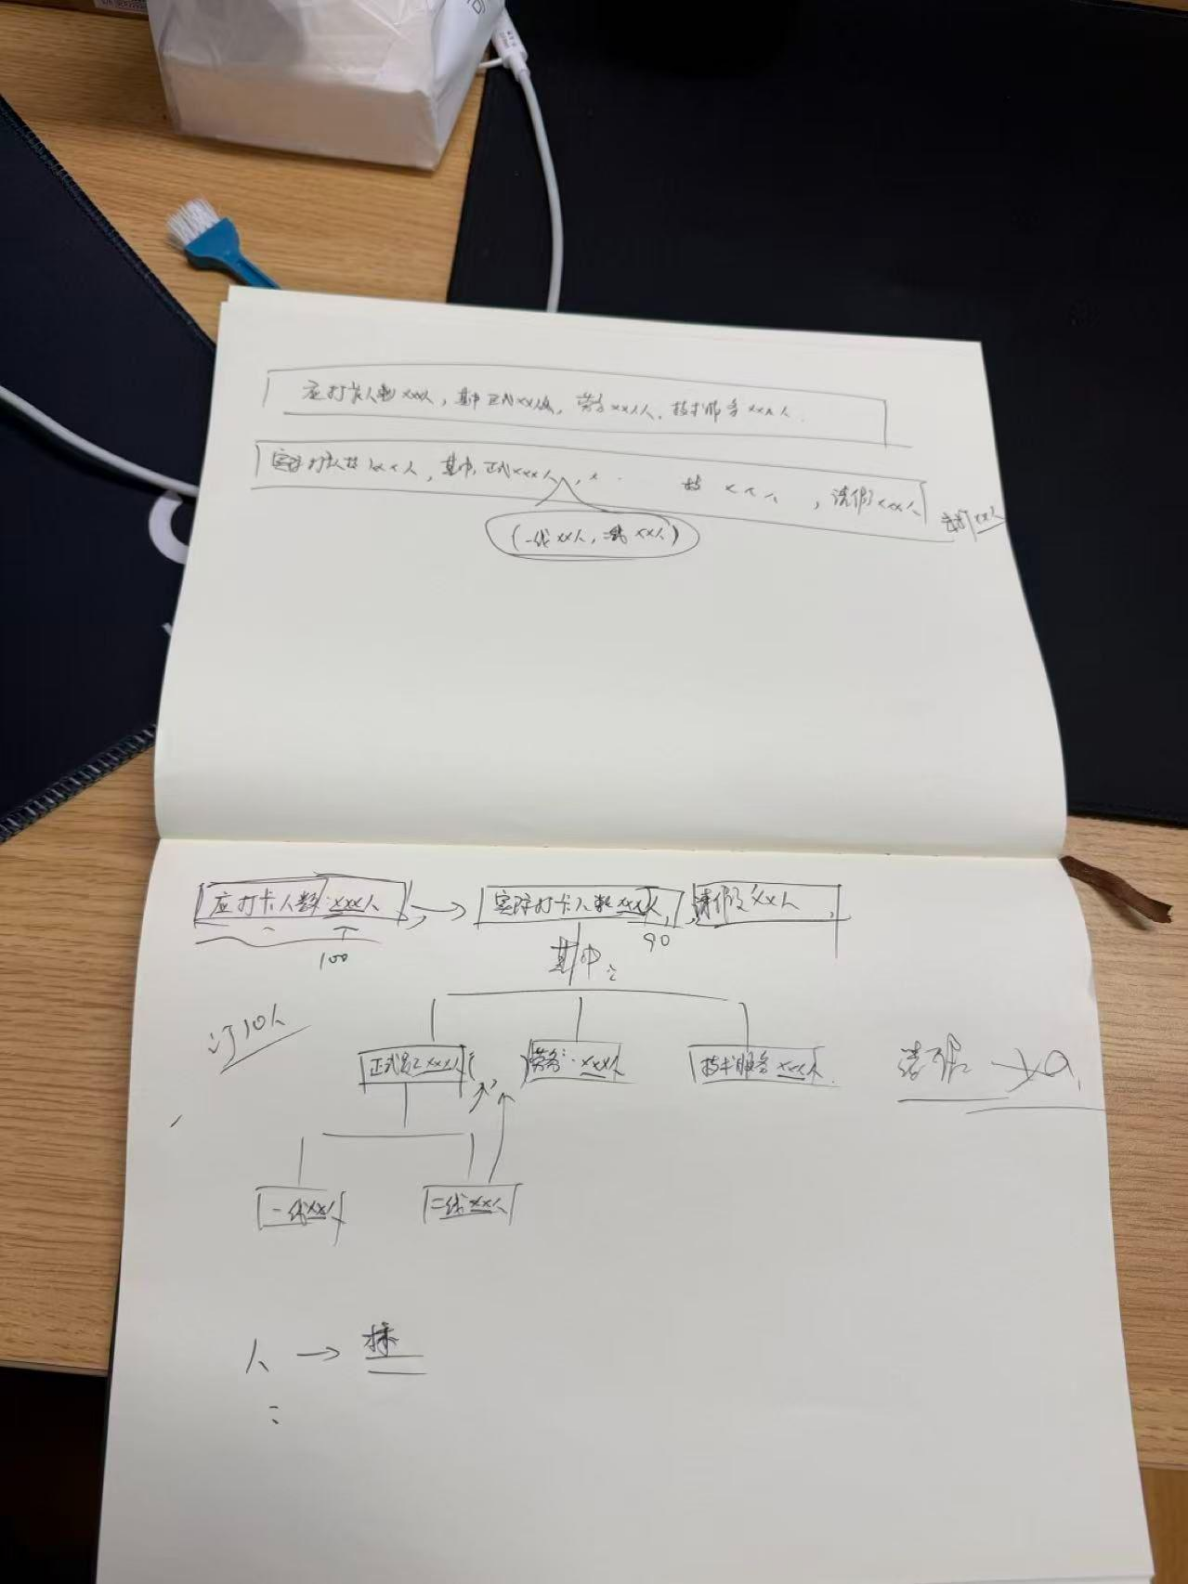 应打卡人数xxx人，其中正式xxx人，劳务xxx人，技术服务xxx人.
实际打卡人数xxx人，其中，正式xxx人，
技 xxx人，请假xxx人
(一线xx人，二线xx人)
xx人
应打卡人数:xxx人， → 实际打卡人数xxx人，请假xx人，
100
90
其中:
10人
正式员工xxx人(
)劳务:xxx人
技术服务xxx人.
请假
一线xx人
二线xx人
人 →